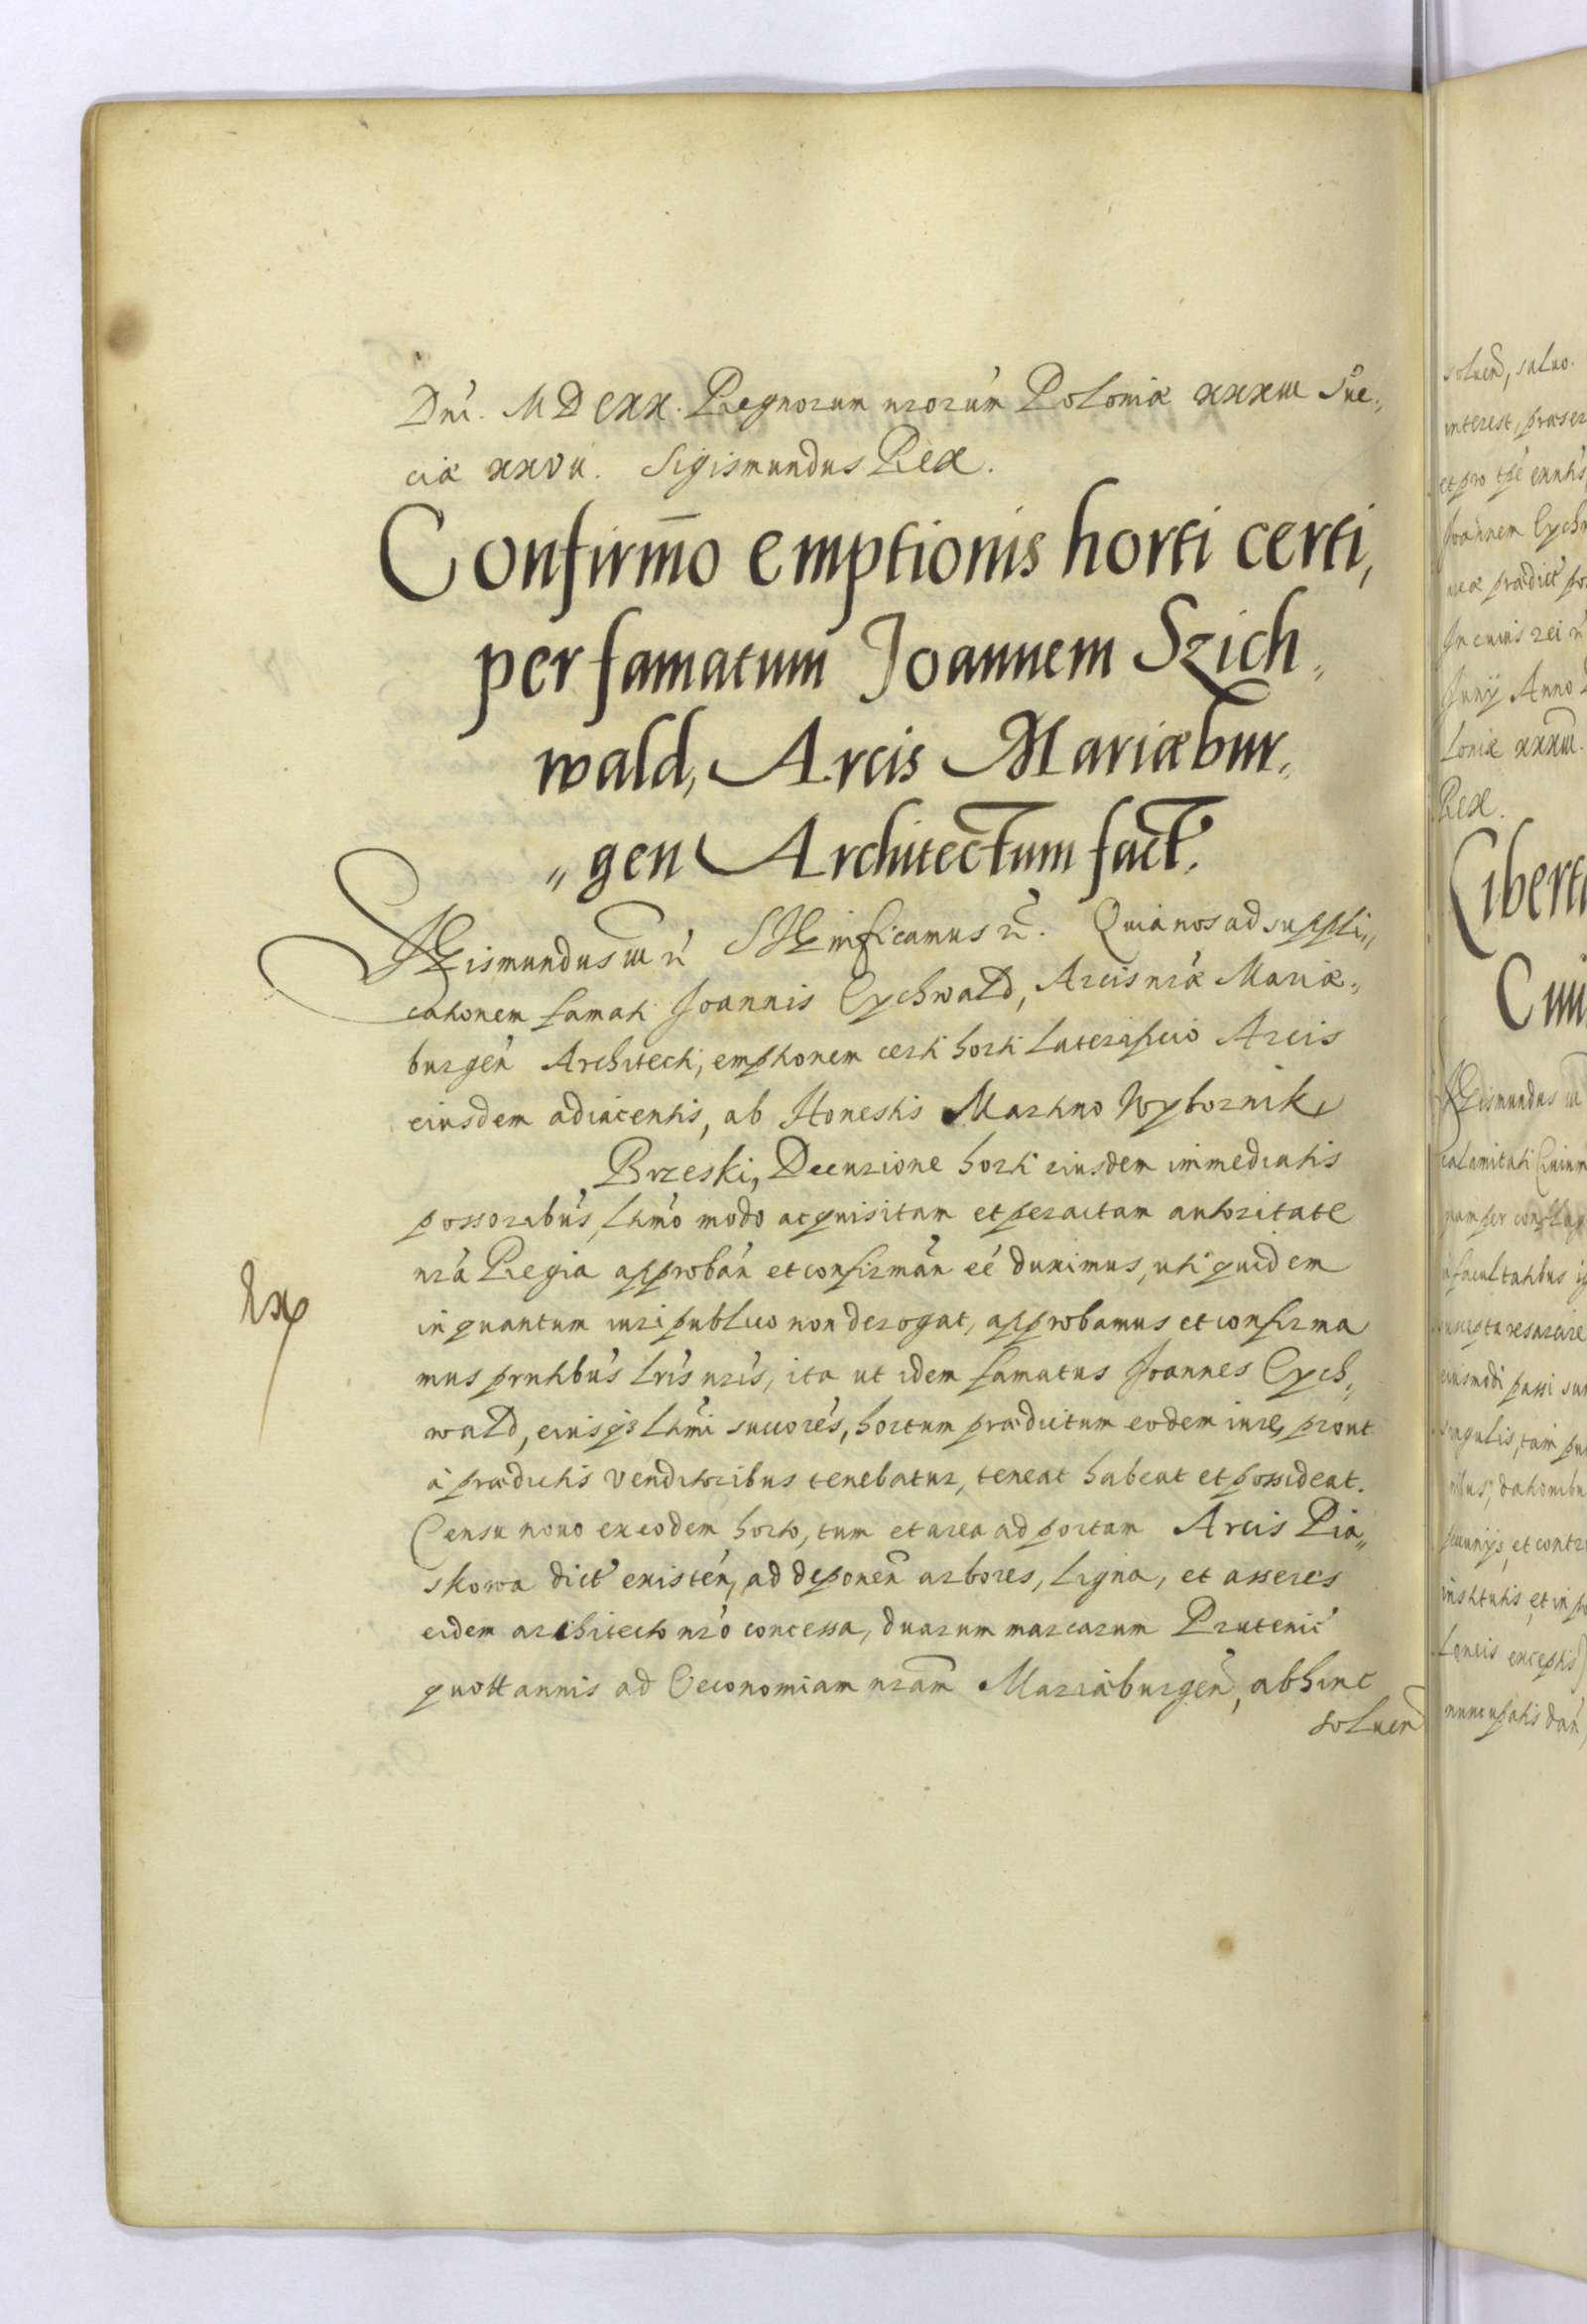 Dni. MDCXX. Regnorum nrorum Poloniæ xxxiii Sue„
ciæ xxvii. Sigismundus Rex.
Confirmo emptionis horti certi,
per famatum Joannem Szich„
wald, Arcis Mariæbur„
„gen Architectum fact.
Sigismundus iii Significamus Quia nos ad suppli„
cationem famati Joannis Eychwald, Arcis nræ Mariæ„
burgen Architecti, emptionem certi horti laterificio Arcis
eiusdem adiacentis, ab Honestis Martino Wybornik
Brzeski, Decurione horti eiusdem immediatis
possoribus, lhmo modo acquisitam et peractam authoritate
nra Regia approban et confirman eé duximus, uti quidem
in quantum iuri publico non derogat, approbamus et confirma
mus pntibus lris nris, ita ut idem famatus Joannes Eych„
wald, eiusqs lhmi succores, hortum prædictum eodem iure, prout
à prædictis venditoribus tenebatur, teneat habeat et possideat.
Censu nouo ex eodem horto, tum et area ad portam Arcis Pia„
skowa dict existen, ad deponen arbores, ligna, et asseres
eidem architecto nro concessa, duarum marcarum Prutenic
quottannis ad Oeconomiam nram Mariæburgen, abhinc
soluen
Exp
soluen, saluo
interest, præser
et pro tpe
Joannem Eych
prædict
In cuius rei
Junij Anno
loniæ xxxiii.
Rex.
Libert
Ciui
Sigismundus iii
calamitati Ciuium
nam per
facultatibus
resarcire
eiusmodi passi sun
singulis, tam pu
dationibu
pecunijs, et contr
institutis, et in
exceptis
nuncupatis dan